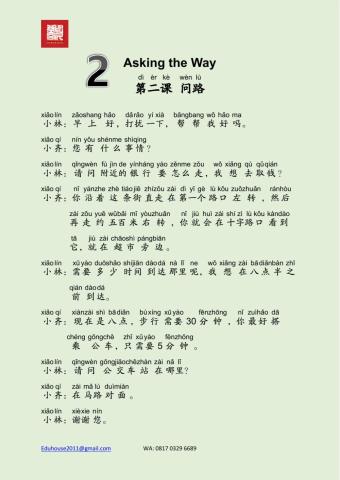 2
Asking the Way
dì èr kè wèn lù
第二课 问路
xiǎo lín zǎoshang hǎo dǎrǎo yí xià bāngbang wǒ hǎo ma
小林：早上好，打扰一下，帮帮我好吗。
xiǎo qí nín yǒu shénme shìqing
小齐：您有什么事情？
xiǎo lín qǐngwèn fù jìn de yínháng yào zěnme zǒu wǒ xiǎng qù qǔqián
小林：请问附近的银行要怎么走，我想去取钱？
xiǎo qí nǐ yánzhe zhè tiáo jiē zhízǒu zài dì yī gè lù kǒu zuǒzhuǎn ránhòu
小齐：你沿着这条街直走在第一个路口左转，然后
zài zǒu yuē wǔbǎi mǐ yòuzhuǎn nǐ jiù huì zài shí zì lù kǒu kàndào
再走约五百米右转，你就会在十字路口看到
tā jiù zài chāoshì pángbiān
它，就在超市旁边。
xiǎo lín xūyào duōshǎo shíjiān dàodá nà lǐ ne wǒ xiǎng zài bādiǎnbàn zhī
小林：需要多少时间到达那里呢，我想在八点半之
qián dàodá
前到达。
xiǎo qí xiànzài shì bādiǎn bùxíng xūyào fēnzhōng nǐ zuìhǎo dā
小齐：现在是八点，步行需要30分钟，你最好搭
chéng gōngchē zhǐ xūyào fēnzhōng
乘公车，只需要5分钟。
xiǎo lín qǐngwèn gōngjiāochēzhàn zài nǎ lǐ
小林：请问公交车站在哪里？
xiǎo qí zài mǎ lù duìmiàn
小齐：在马路对面。
xiǎo lín xièxie nín
小林：谢谢您。
Eduhouse2011@gmail.com WA: 0817 0329 6689